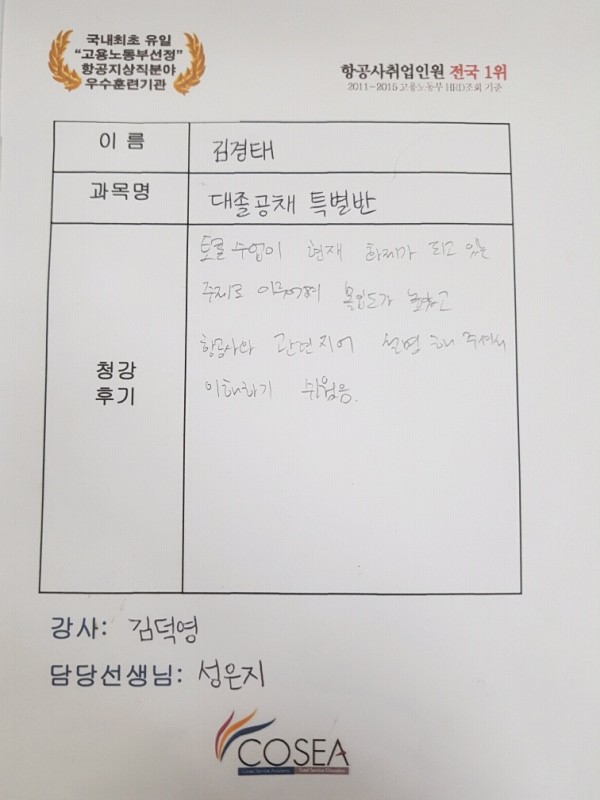 국내최초 유일
"고용노동부선정"
항공지상직분야
우수훈련기관
항공사취업인원 전국 1위
2011~2015 고용노동부 HRD조회 기준
이 름
김경태
과목명
대졸공채 특별반
청강
후기
토론 수업이 현재 화제가 되고 있는
주제로 이루어져 몰입도가 높았고
항공사와 관련지어 설명해 주셔서
이해하기 쉬웠음.
강사: 김덕영
담당선생님: 성은지
COSEA